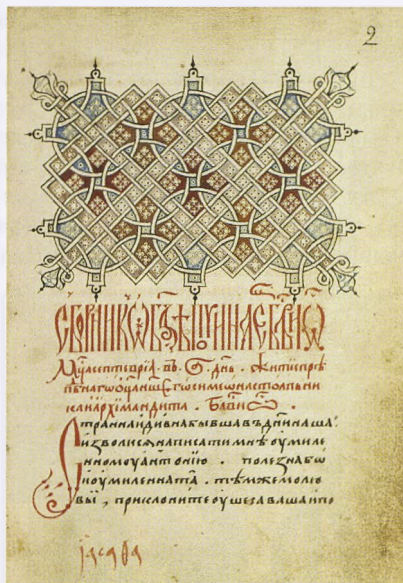 2
Сборник
Мц҃а септеврїа · въ · а҃ · днь · житїе прѣ
пбнаго ѡц҃а нш҃его симеѡна столпьни
ка и архїмандита · бл҃ви ѿ ·
Странна и дивна бывша въ дни наша ·
изволисѧ написати мнѣ оумиле
нномоу антонїю · полезна бѡ
и оумиленна та · тѣмже молю
вы , приклоните оушеса ваша и по